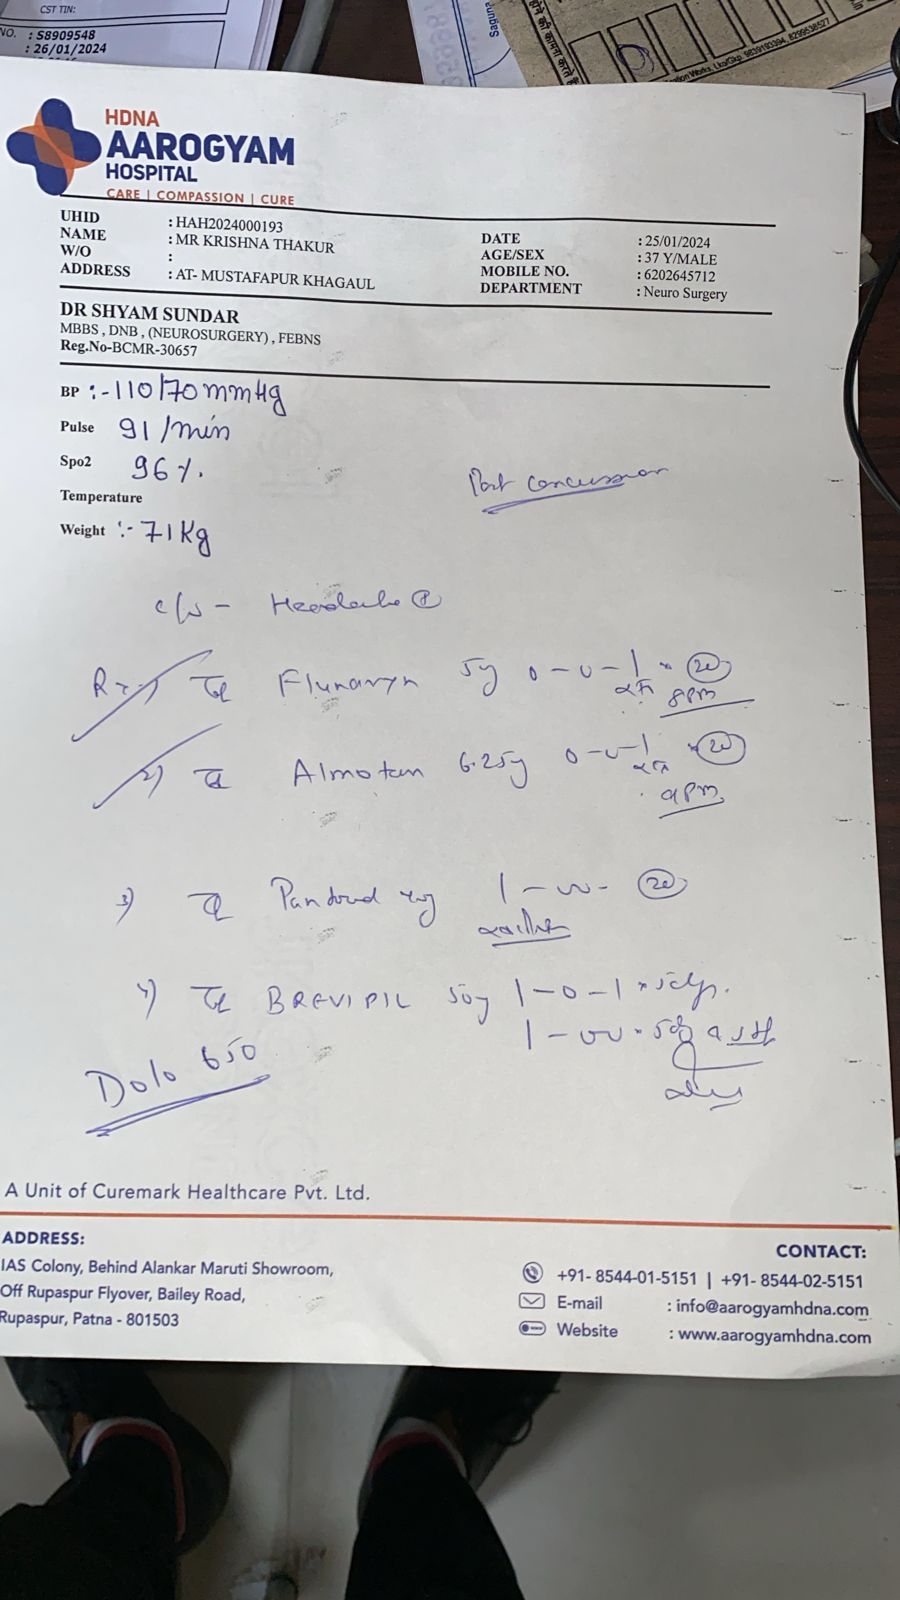 CST TIN:
NO. : S8909548
: 26/01/2024
HDNA
AAROGYAM
HOSPITAL
CARE | COMPASSION | CURE
UHID : HAH2024000193
NAME : MR KRISHNA THAKUR
W/O :
ADDRESS : AT- MUSTAFAPUR KHAGAUL
DATE : 25/01/2024
AGE/SEX : 37 Y/MALE
MOBILE NO. : 6202645712
DEPARTMENT : Neuro Surgery
DR SHYAM SUNDAR
MBBS , DNB , (NEUROSURGERY) , FEBNS
Reg.No-BCMR-30657
BP :-110/70mmHg
Pulse 91/min
Spo2 96%.
Temperature
Weight :- 71Kg
Post concussion
Headache
Flunaryn 0-0-1 20
8pm
2) Almotan 6.25 0-0-1 20
9pm
3) 1- 20
4) BREVIPIL 50 1-0-1
Dolo 650
A Unit of Curemark Healthcare Pvt. Ltd.
ADDRESS:
IAS Colony, Behind Alankar Maruti Showroom,
Off Rupaspur Flyover, Bailey Road,
Rupaspur, Patna - 801503
CONTACT:
+91- 8544-01-5151 | +91- 8544-02-5151
E-mail : info@aarogyamhdna.com
Website : www.aarogyamhdna.com